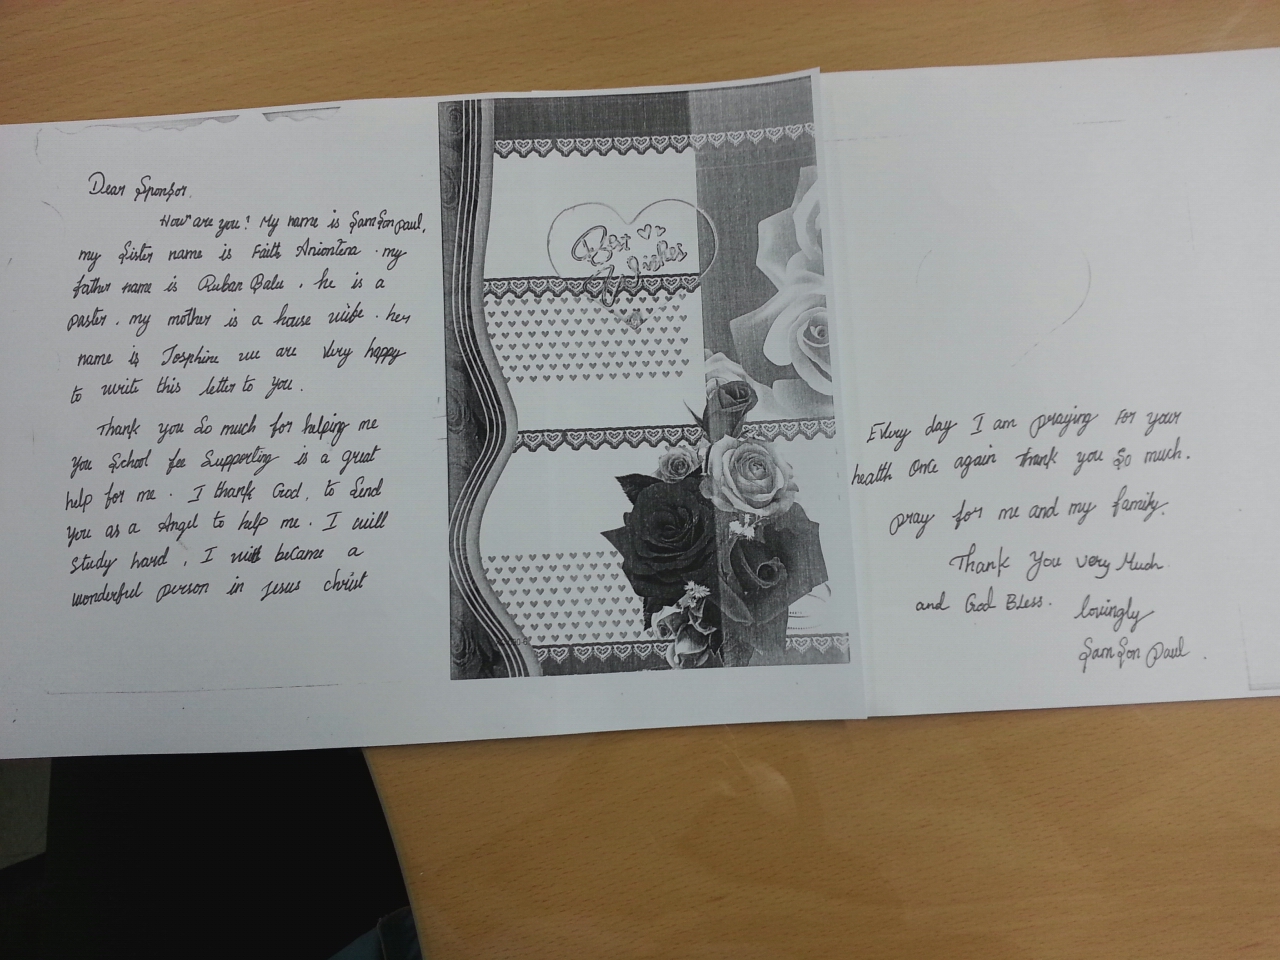 Dear Sponsor.
How are you! My name is Samson paul,
my Sister name is Faith Aniontena . my
father name is Ruban Balu . he is a
paster . my mother is a house wife . her
name is Josphine we are very happy
to write this letter to you .
Thank you So much for helping me
You School fee Supporting is a great
help for me . I thank God, to Send
You as a Angel to help me . I will
Study hard , I will became a
wonderful person in Jesus christ
Best
Wishes
Every day I am praying For your
health Once again thank you So much.
pray for me and my family.
Thank You very Much
and God Bless.
lovingly
Samson Paul .